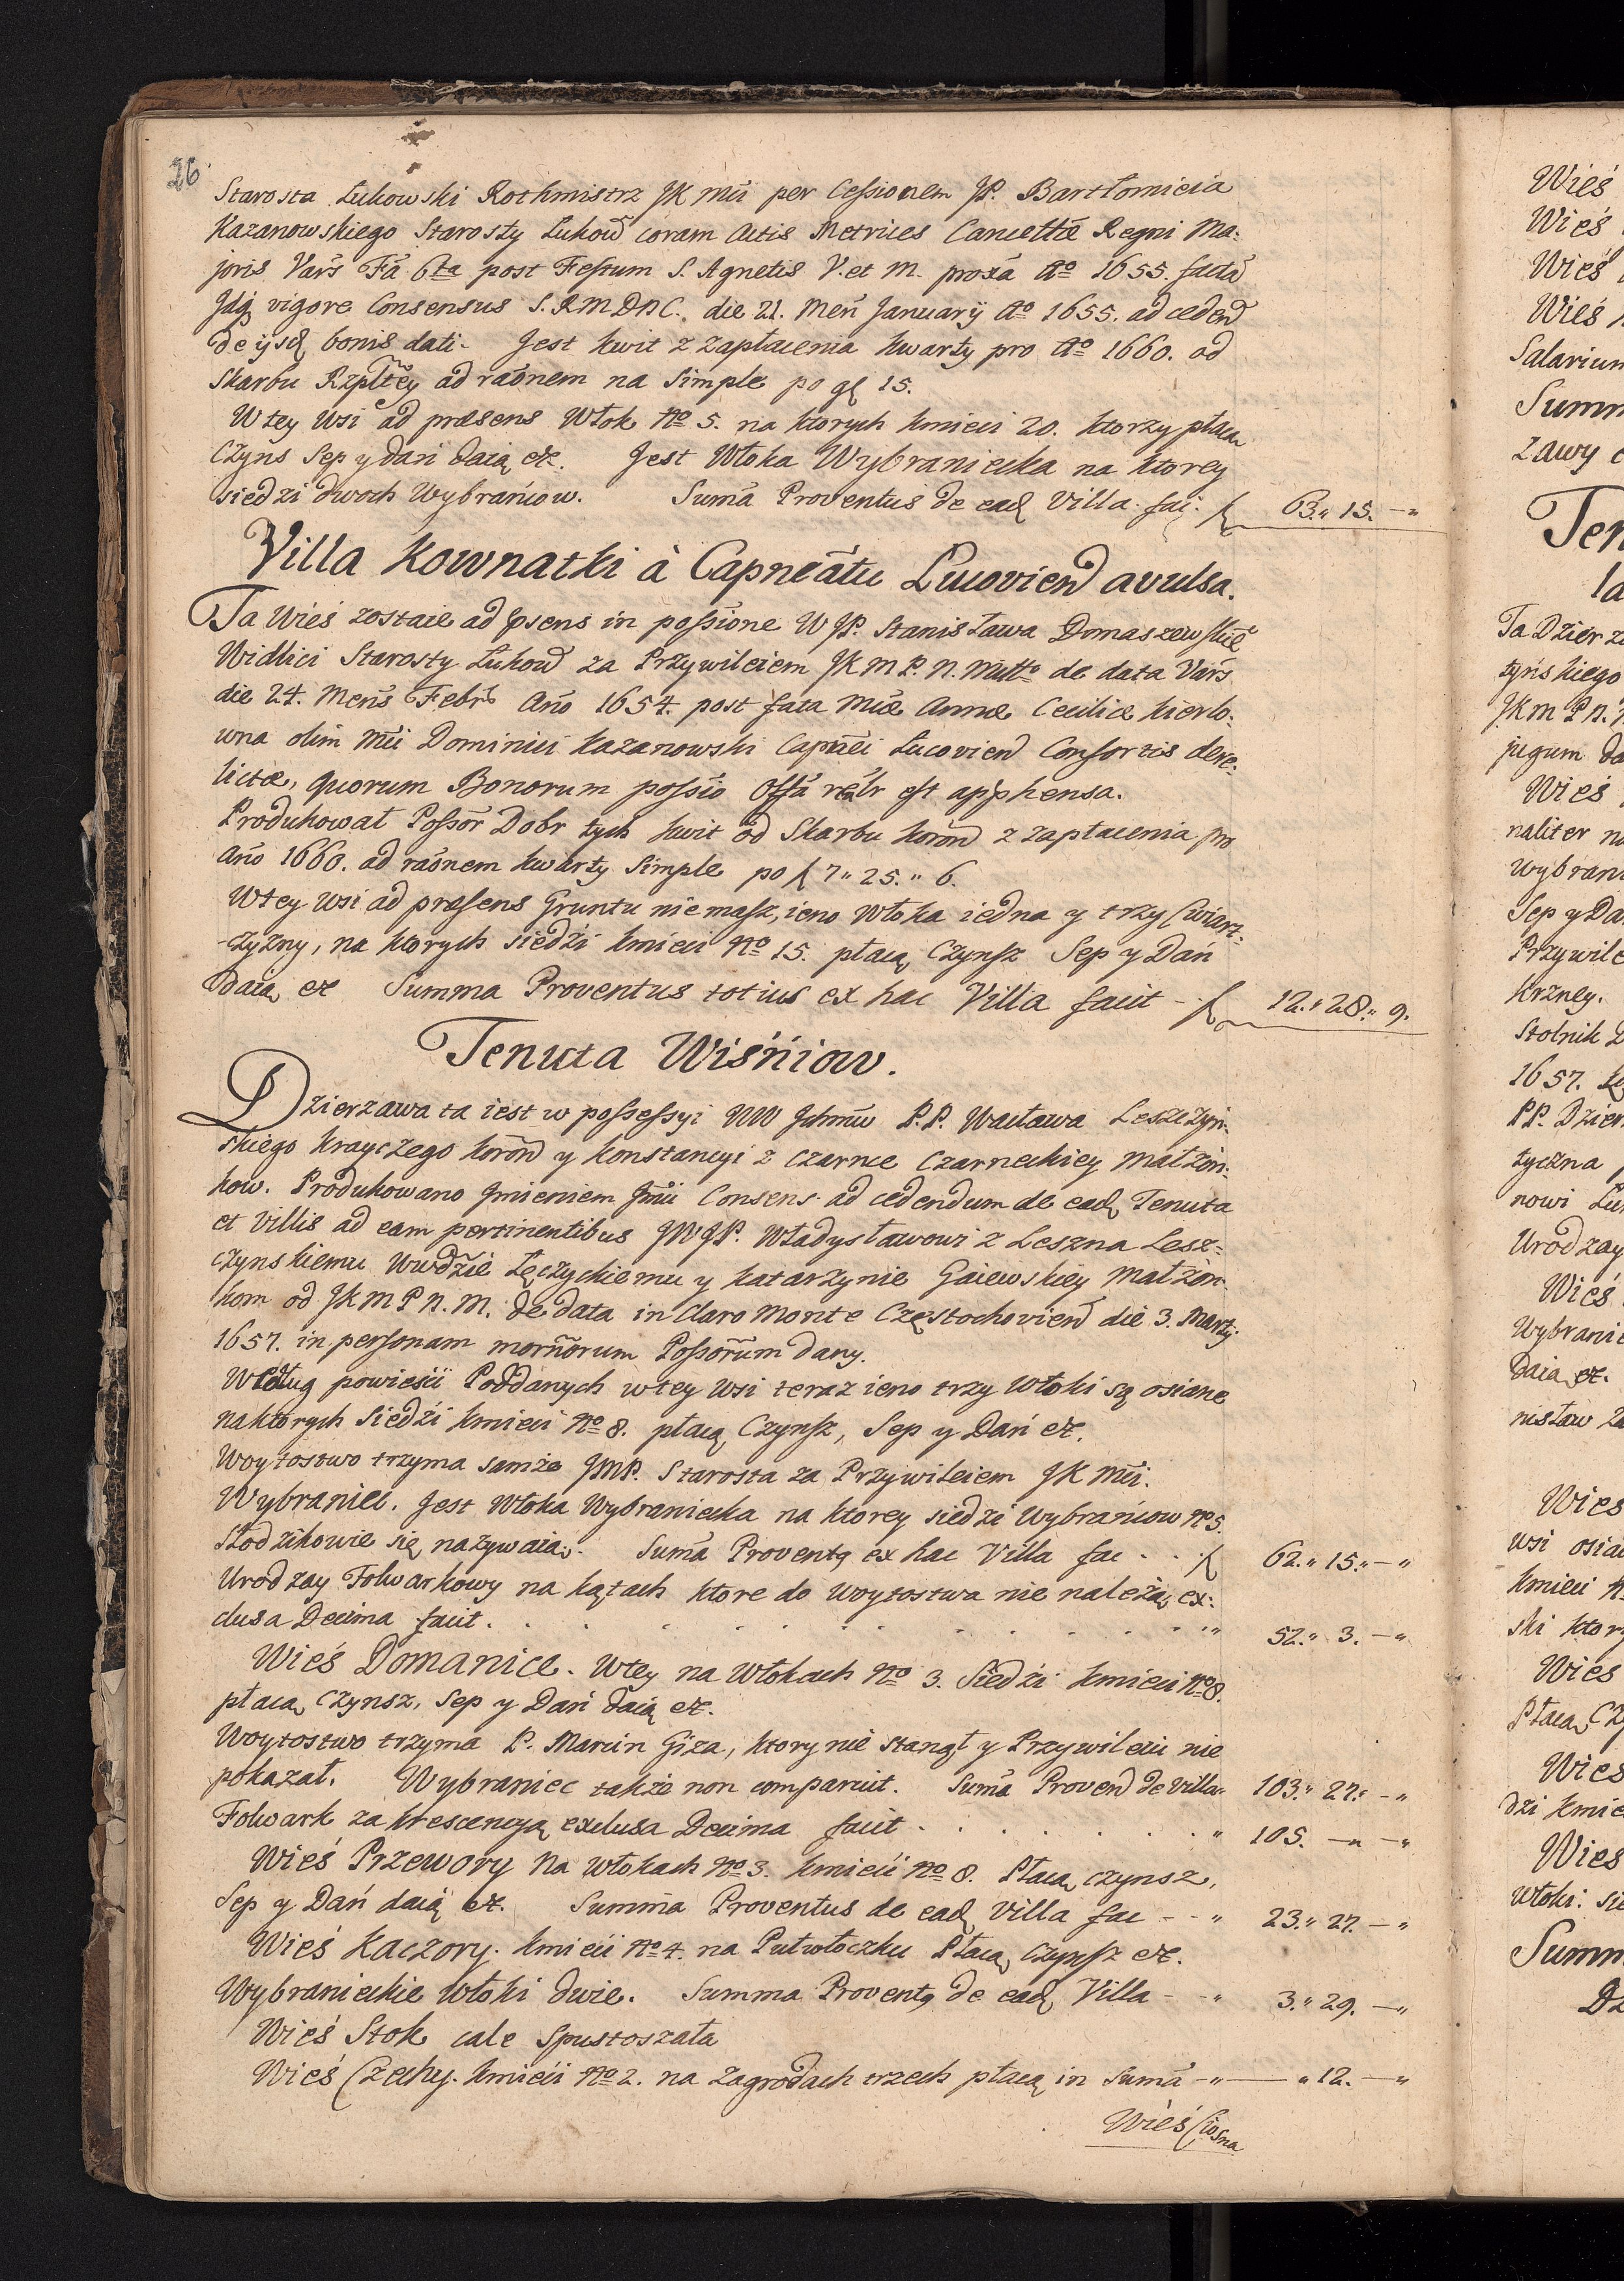 26
Starosta Łukowski Rothmistrz JKMći per Cessionem JP. Bartłomieia
Kazanowskiego Starosty Łukow̃ coram Actis Metrices Cancellæ Regni Ma:
joris Vars̃ F̃a 6ta post Festum S. Agnetis V. et M. proxã Aº 1655. facta
Idq vigore Consensus S. RMDNC. die 21. Men̄ January Aº 1655. ad cedend
de ijsd bonis dati. Jest kwit z zapłacenia kwarty pro Aº 1660. od
Skarbu Rzpltey ad raõnem na Simple po gł 15.
W tey wsi ad præsens Włok Nº 5. na ktorych kmieci 20. ktorzy płacą
Czyns Sep y dań daią etc. Jest Włoka Wybraniecka na ktorey
siedzi dwoch Wybrańcow. Sum̃a Proventus de ead Villa fac: f 63.„ 15. —„
Villa Kownatki à Capneatu Lucovien avulsa.
Ta Wieś zostaie ad psens in possione WJP. Stanisława Domaszewskie
Widlici Starosty Łukow za Przywileiem JKMP. N. Mtto de data Vars
die 24. Mens̃ Febr Año 1654. post fata Mcæ Annæ Ceciliæ kierlo:
wna olim Mci Dominici Kazanowski Capnei Lucovien Consortis dere:
lictæ, quorum Bonorum possio Offa realr est apphensa.
Produkował Possor Dobr tych kwit od Skarbu koron z zapłacenia pro
Año 1660. ad raõnem kwarty Simple po f 7„ 25.„ 6.
W tey wsi ad præsens Gruntu niemasz, ieno Włoka iedna y trzy Cwiart-
-czyzny, na ktorych siedźi kmieci Nº 15. płacą Czynsz Sep y Dań
daią etc Summa Proventus totius ex hac Villa facit - f 12.„ 28.„ 9.
Tenuta Wiśniow.
Dzierzawa ta iest w possessyi WW Jchmw P.P. Wacława Leszczyń-
skiego Krayczego koron y konstancyi z Czarnce Czarneckiey Małżon-
kow. Produkowano Jmieniem Jmci Consens ad cedendum de ead Tenuta
et Villis ad eam pertinentibus JWJP. Władysławowi z Leszna Lesz=
czynskiemu Wwdzie Łęczyckiemu y Katarzynie Gaiewskiey Małżon-
kom od JKMPN.M. de data in Claro Monte Częstochovien die 3. Marty
1657. in personam mornorum Possorum dany.
Według powieści Poddanych w tey wsi teraz ieno trzy włoki są osiane
na ktorych siedźi kmieci Nº 8. płacą Czynsz, Sep y Dań etc.
Woytostwo trzyma samże JMP. Starosta za Przywileiem JKMći.
Wybraniec. Jest Włoka Wybraniecka na ktorey siedzi Wybrańcow Nº 5.
Słodzikowie się nazywaią. Sum̃a Proventq ex hac Villa fac . . f 62.„ 15.„ —„
Urodzay Folwarkowy na kątach ktore do woytostwa nie należą ex:
clusa Decima facit . . . . . . . . . . . . „ 52.„ 3. —„
Wieś Domanice. W tey na włokach Nº 3. Siedźi kmieci Nº 8.
płacą Czynsz, Sep y Dań daią etc.
Woytostwo trzyma P. Marcin Giza, ktory nie stanął y Przywileiu nie
pokazał. Wybraniec także non comparuit. Sum̃a Proven de Villa „ 103.„ 27.„ -„
Folwark za krescencyą exclusa Decima facit . . . . . . „ 105. —„ —„
Wieś Przewory Na włokach Nº 3. kmieci Nº 8. Płacą czynsz,
Sep y Dań daią etc. Summa Proventus de ead Villa fac - - „ 23.„ 27. —„
Wieś Kaczory. kmieci Nº 4. na Pułwłoczku Płacą Czynsz etc.
Wybranieckie Włoki dwie. Summa Proventq de ead Villa - - „ 3.„ 29. —„
Wieś Stok cale Spustoszała
Wieś Czechy. kmieci Nº 2. na Zagrodach trzech płacą in Sumã -„ — „ 12. —„
Wieś Ciosna
Wieś
Wieś
Wieś
Wieś
Salarium
Summ
żawy
Ten
Ta Dzierza
tyńskiego
JKMPN.
jugum
Wieś
naliter
wybran
Sep y Da
Przywile
krzney.
Stolnik
1657.
PP. Dzier
tyczna
nowi Łu
Urodzay
Wieś
Wybranie
Daią etc.
nisław
Wies
wsi osia
kmieci
ski ktor
Wies
Płacą Cz
Wies
dzi kmie
Wies
włoki: sie
Summ
Dz